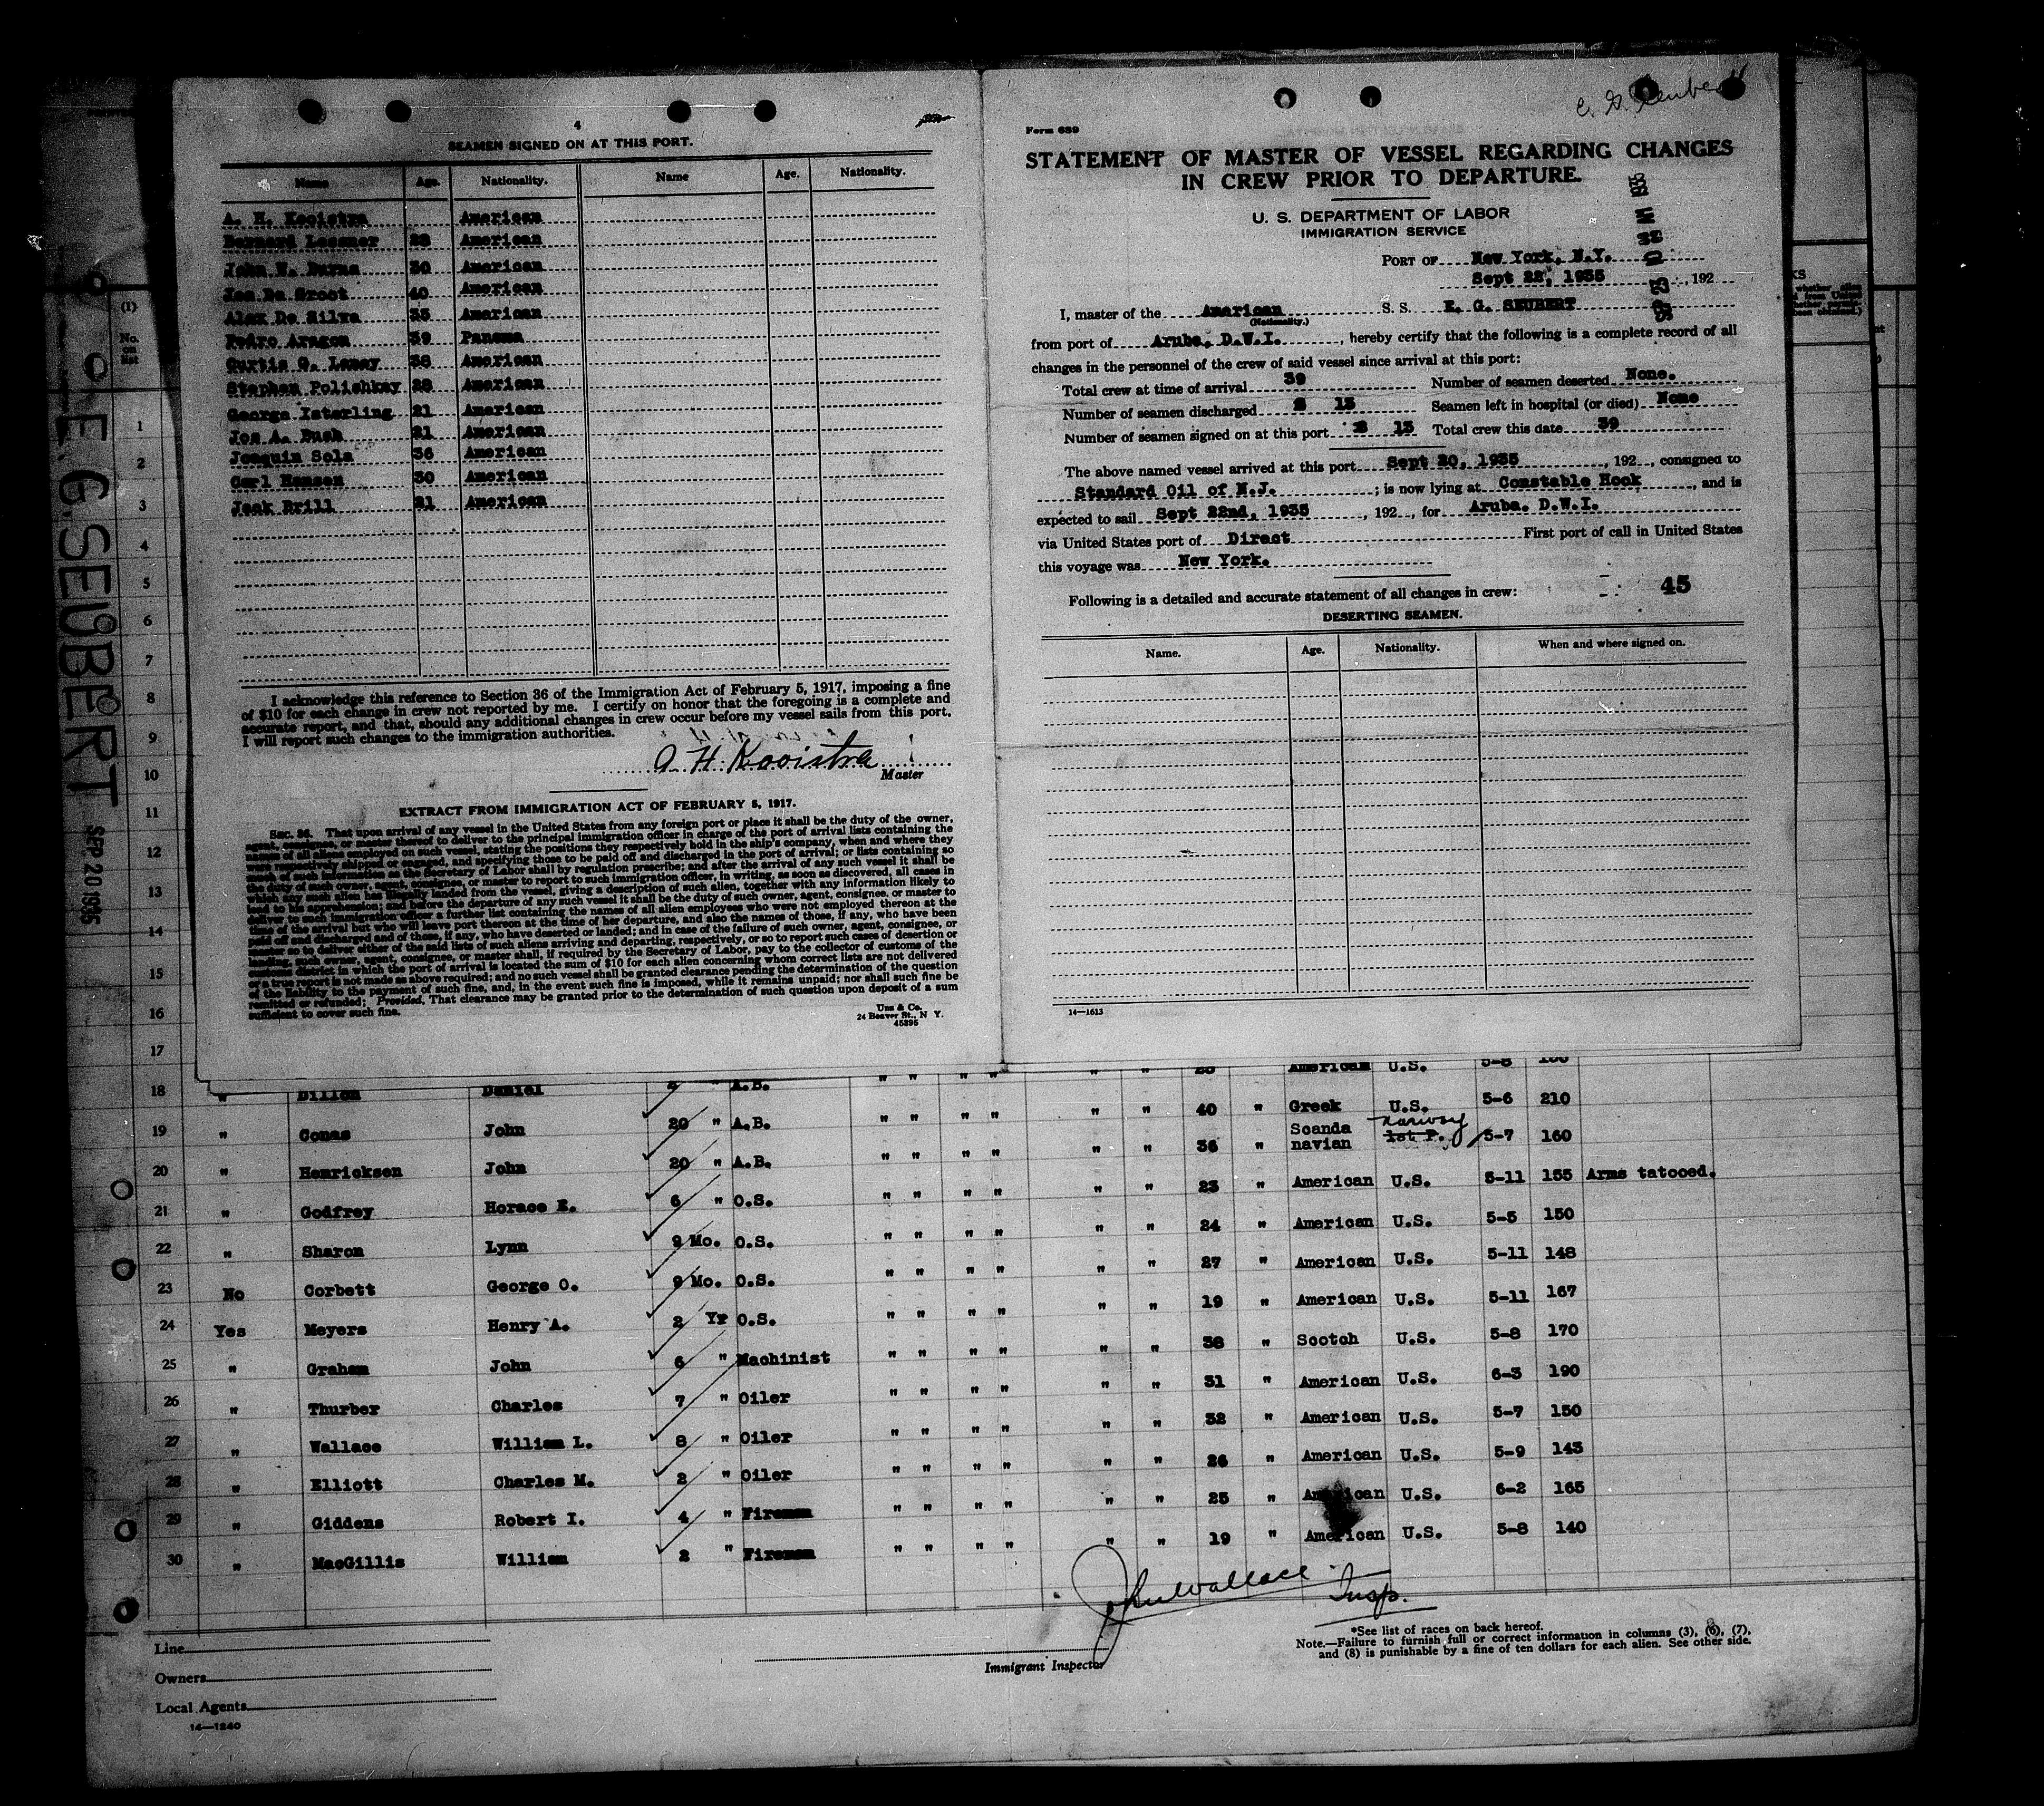 4
SEAMEN SIGNED ON AT THIS PORT.
Name Age. Nationality. Name Age. Nationality.
A. H. Kooistra American
Bernard Lessner 28 American
John W. Burns 30 American
Jan De Groot 40 American
Alex De Silva 35 American
Pedro Aragon 39 Panama
Curtis G. Laney 36 American
Stephen Polishkay 28 American
George Isterling 21 American
Jos A. Bush 21 American
Joaquin Sola 36 American
Carl Hansen 30 American
Jack Brill 21 American
I acknowledge this reference to Section 36 of the Immigration Act of February 5, 1917, imposing a fine
of $10 for each change in crew not reported by me. I certify on honor that the foregoing is a complete and
accurate report, and that, should any additional changes in crew occur before my vessel sails from this port,
I will report such changes to the immigration authorities.
A H. Kooistra
Master
EXTRACT FROM IMMIGRATION ACT OF FEBRUARY 5, 1917.
Sec. 36. That upon arrival of any vessel in the United States from any foreign port or place it shall be the duty of the owner,
agent, consignee, or master thereof to deliver to the principal immigration officer in charge of the port of arrival lists containing the
names of all aliens employed on such vessel, stating the positions they respectively hold in the ship's company, when and where they
were respectively shipped or engaged, and specifying those to be paid off and discharged in the port of arrival; or lists containing so
much of such information as the Secretary of Labor shall by regulation prescribe; and after the arrival of any such vessel it shall be
the duty of such owner, agent, consignee, or master to report to such immigration officer, in writing, as soon as discovered, all cases in
which any such alien has illegally landed from the vessel, giving a description of such alien, together with any information likely to
lead to his apprehension; and before the departure of any such vessel it shall be the duty of such owner, agent, consignee, or master to
deliver to such immigration officer a further list containing the names of all alien employees who were not employed thereon at the
time of the arrival but who will leave port thereon at the time of her departure, and also the names of those, if any, who have been
paid off and discharged and of those, if any, who have deserted or landed; and in case of the failure of such owner, agent, consignee, or
master so to deliver either of the said lists of such aliens arriving and departing, respectively, or so to report such cases of desertion or
landing, such owner, agent, consignee, or master shall, if required by the Secretary of Labor, pay to the collector of customs of the
customs district in which the port of arrival is located the sum of $10 for each alien concerning whom correct lists are not delivered
or a true report is not made as above required; and no such vessel shall be granted clearance pending the determination of the question
of the liability to the payment of such fine, and, in the event such fine is imposed, while it remains unpaid; nor shall such fine be
remitted or refunded: Provided, That clearance may be granted prior to the determination of such question upon deposit of a sum
sufficient to cover such fine.
Unz & Co.
24 Beaver St., N Y.
45395
E. G. Seubert
Form 689
STATEMENT OF MASTER OF VESSEL REGARDING CHANGES
IN CREW PRIOR TO DEPARTURE.
U. S. DEPARTMENT OF LABOR
IMMIGRATION SERVICE
PORT OF New York, N.Y.
Sept 22, 1935, 192
I, master of the American S. S. E. G. SEUBERT
(Nationality.)
from port of Aruba, D.W.I., hereby certify that the following is a complete record of all
changes in the personnel of the crew of said vessel since arrival at this port:
Total crew at time of arrival 39 Number of seamen deserted None.
Number of seamen discharged 13 Seamen left in hospital (or died) None
Number of seamen signed on at this port 13 Total crew this date 39
The above named vessel arrived at this port Sept 20, 1935, 192, consigned to
Standard Oil of N.J.; is now lying at Constable Hook, and is
expected to sail Sept 22nd, 1935, 192, for Aruba. D.W.I.
via United States port of Direct First port of call in United States
this voyage was New York.
Following is a detailed and accurate statement of all changes in crew: 45
DESERTING SEAMEN.
Name. Age. Nationality. When and where signed on.
14—1613
E. G. SEUBERT
SEP 20 1935
(1)
No.
on
list
1
2
3
4
5
6
7
8
9
10
11
12
13
14
15
16
17
18 " Dillon Daniel " A.B. " " " " " " American U.S. 5-8
19 " Conas John 20 " A.B. " " " " " " 40 " Greek U.S. 5-6 210
20 " Henricksen John 20 " A.B. " " " " " " 36 " Scandanavian 1st P. Norway 5-7 160
21 " Godfrey Horace E. 6 " O.S. " " " " " " 23 " American U.S. 5-11 155 Arms tatooed.
22 " Sharon Lynn 9 Mo. O.S. " " " " " " 24 " American U.S. 5-5 150
23 No Corbett George O. 9 Mo. O.S. " " " " " " 27 " American U.S. 5-11 148
24 Yes Meyers Henry A. 2 Yr O.S. " " " " " " 19 " American U.S. 5-11 167
25 " Graham John 6 " Machinist " " " " " " 38 " Scotch U.S. 5-8 170
26 " Thurber Charles 7 " Oiler " " " " " " 31 " American U.S. 6-3 190
27 " Wallace William L. 8 " Oiler " " " " " " 32 " American U.S. 5-7 150
28 " Elliott Charles M. 2 " Oiler " " " " " " 26 " American U.S. 5-9 143
29 " Giddens Robert I. 4 " Fireman " " " " " " 25 " American U.S. 6-2 165
30 " MacGillis William 2 " Fireman " " " " " " 19 " American U.S. 5-8 140
John Wallace Insp.
Line
Owners
Local Agents
14—1240
Immigrant Inspector
*See list of races on back hereof.
Note.—Failure to furnish full or correct information in columns (3), (6), (7),
and (8) is punishable by a fine of ten dollars for each alien. See other side.